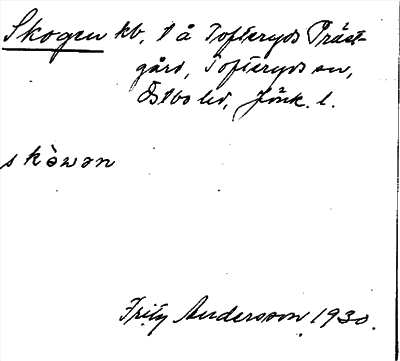 Skogen kb, 1 å Tofteryds Präst-
gård, Tofteryds sn,
Östbo hd, Jönk. l.
skòwən
Fritz Andersson 1930.